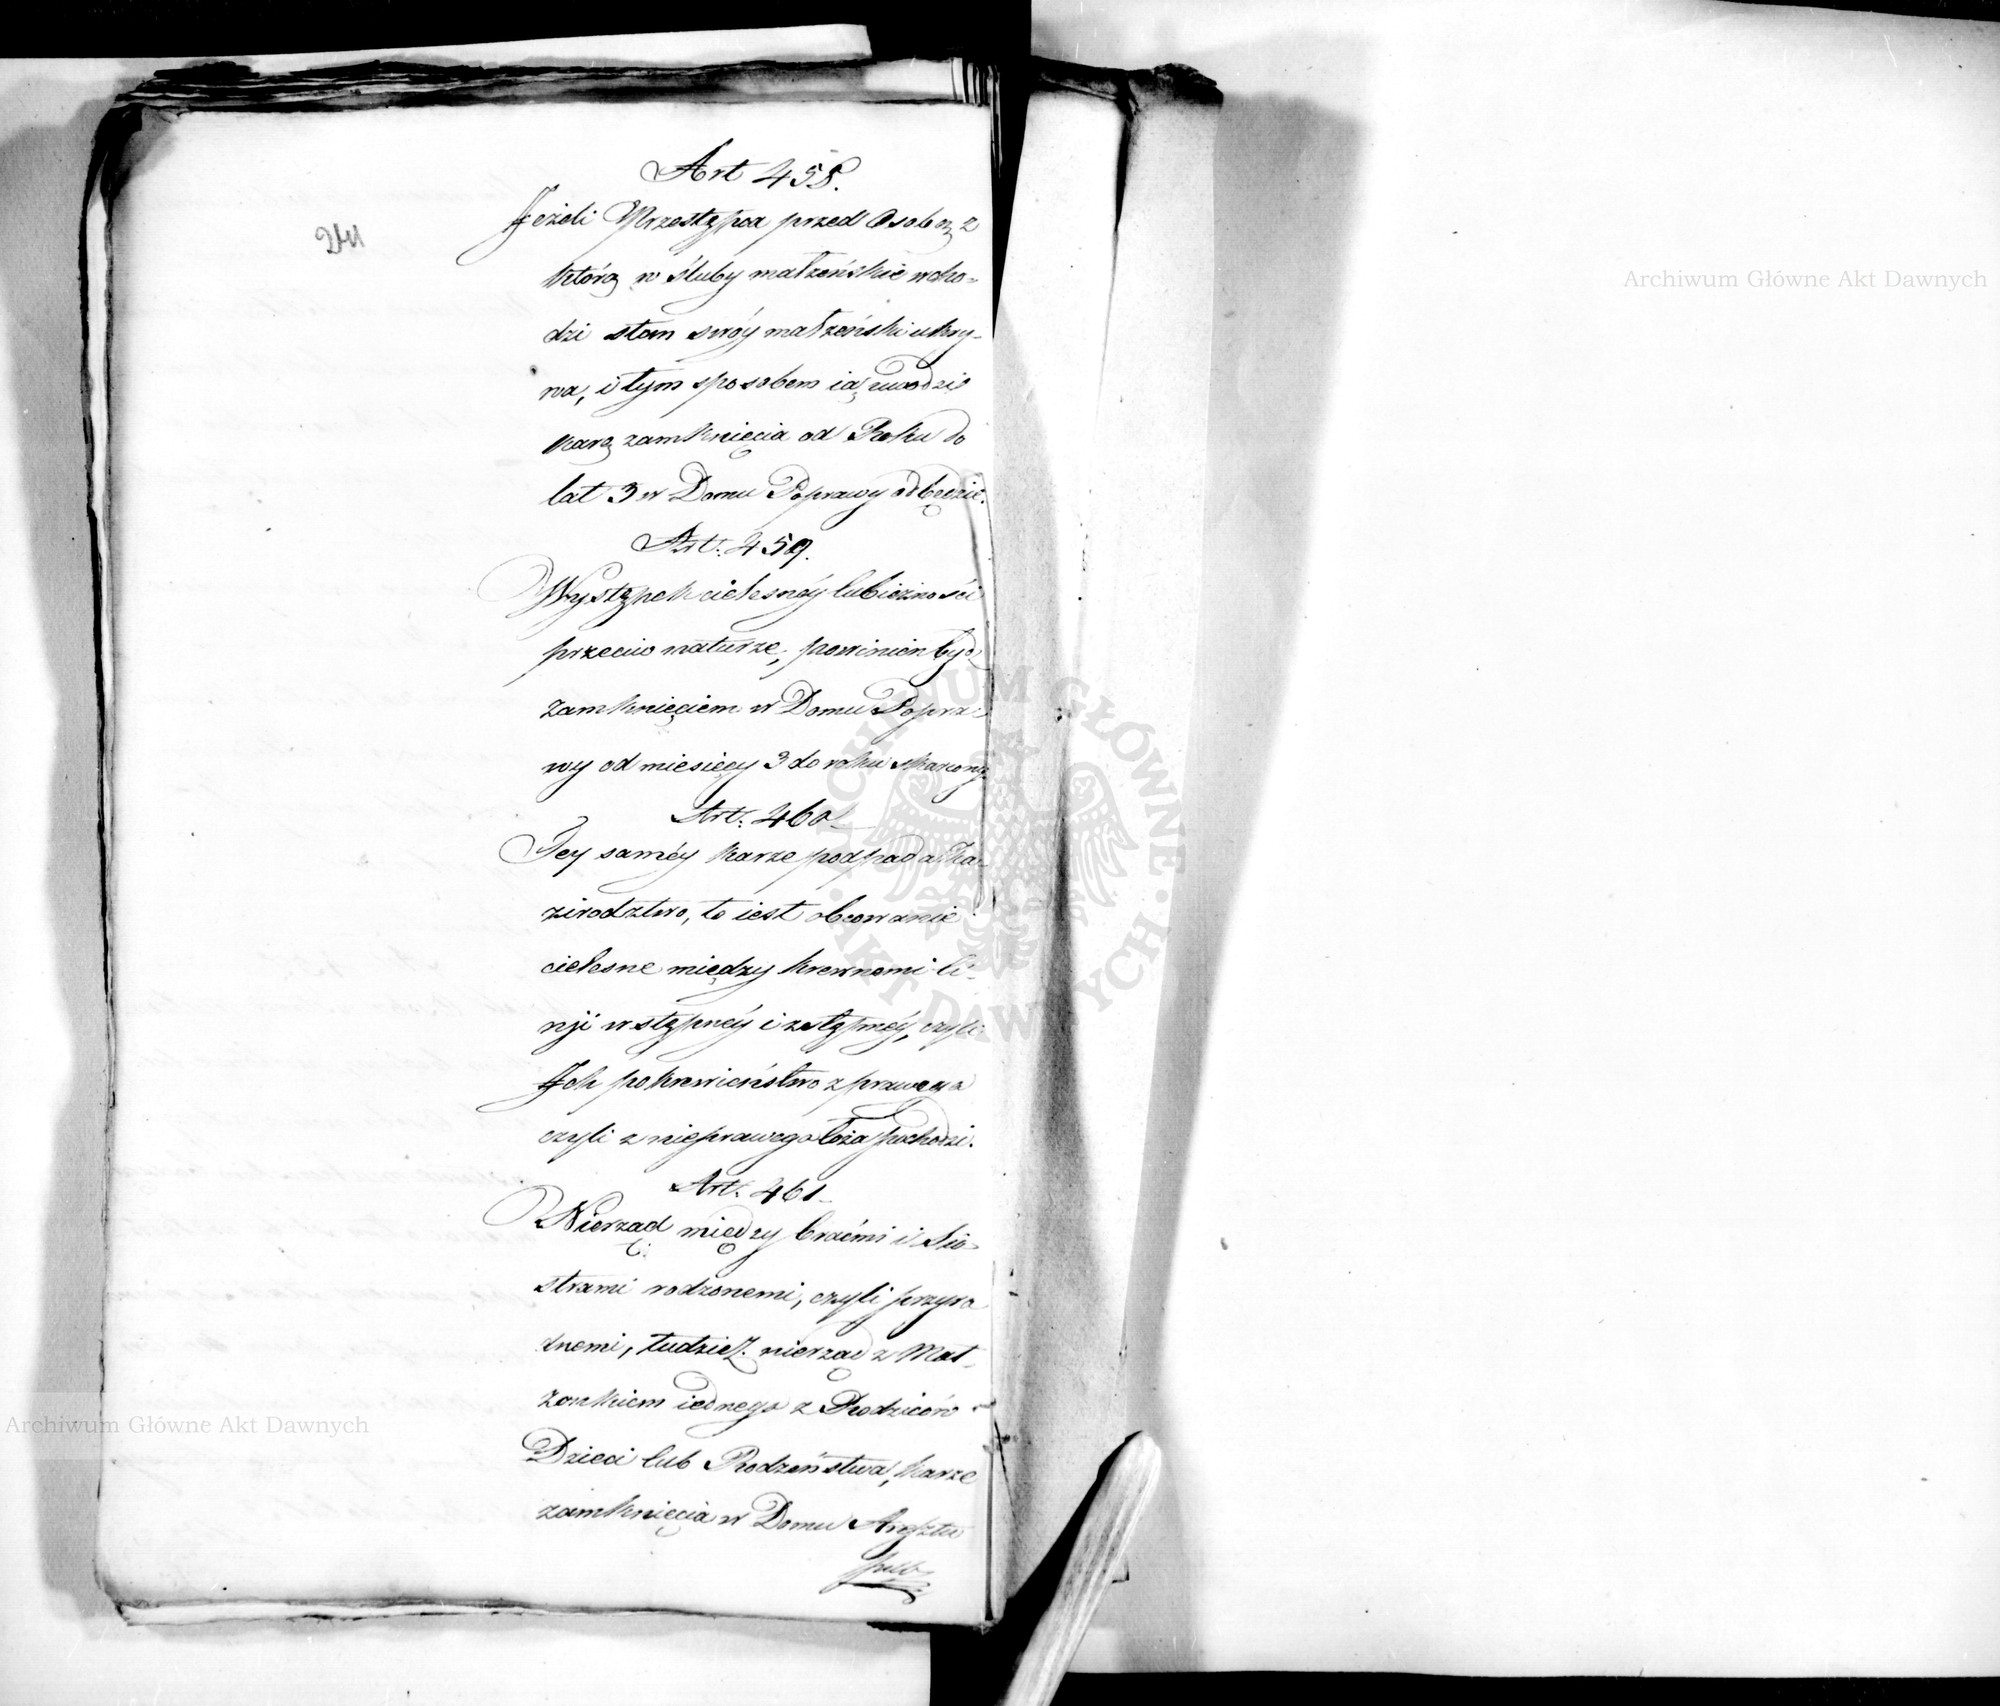 Art 458.
Jeżeli Przestępca przed Osobą z
którą w śluby małżeńskie wcho-
dzi stan swóy małżeński ukry-
wa, i tym sposobem ią uwodzi
karę zamknięcia od Roku do
lat 3 w Domu Poprawy odbędzie.
Art. 459.
Występek cielesnéy lubieżności
przeciw naturze, powinien bydź
zamknięciem w Domu Popra-
wy od miesięcy 3 do roku skarcony
Art. 460
Tey saméy karze podpada Ka-
zirodztwo, to iest obcowanie
cielesne między krewnemi li-
nji wstępnéy i zstępnéy, czyli
Ich pokrewieństwo z prawego
czyli z nieprawego łoża pochodzi.
Art. 461
Nierząd między braćmi i Sio-
strami rodzonemi, czyli przyro
dnemi, tudzież nierząd z Mał-
żonkiem iednego z Rodziców
Dzieci lub Rodzeństwa, karze
zamknięcia w Domu Aresztu
publ
Archiwum Główne Akt Dawnych
Archiwum Główne Akt Dawnych
ARCHIWUM GŁÓWNE · AKT DAWNYCH ·